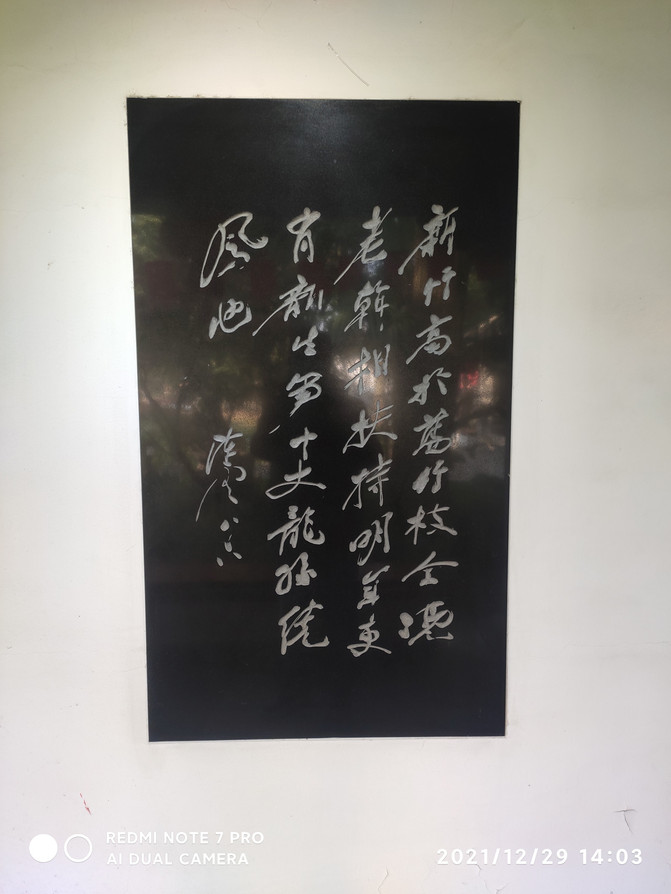 新竹高於舊竹枝全憑
老幹相扶持明年更
有新生十丈龍孫繞
鳳池
REDMI NOTE 7 PRO
AI DUAL CAMERA
2021/12/29 14:03